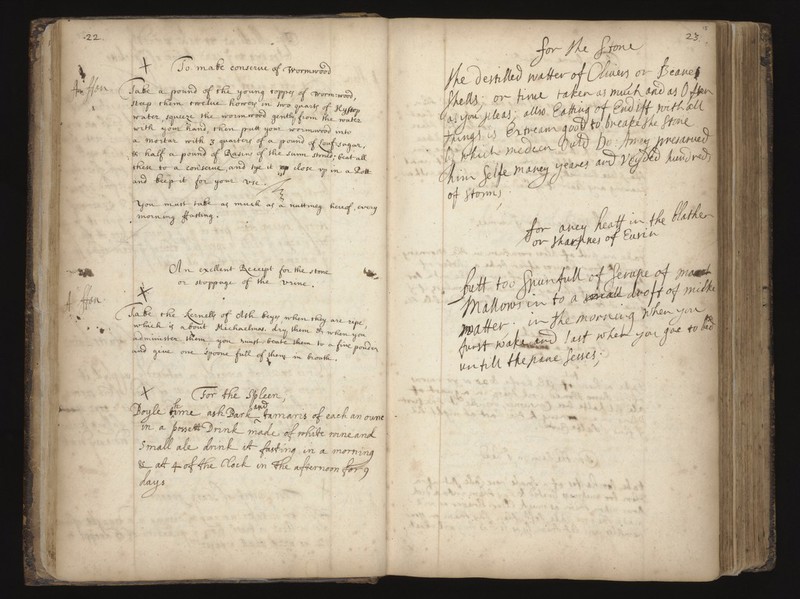 22.
To make conserve of wormwood
Take a pound of the young toppes of wormwood,
steep them twelve howers in two quarts of Hyssop
water, squeeze the wormwood gently from the water
with your hand, then putt your wormwood into
a mortar with 3 quarters of a pound of Loaf sugar,
& half a pound of Rasins of the sunne stoned, beat all
these to a conserve, and tye it up close up in a Pott
and keep it for your use.
You must take as much as a nuttmeg hereof, every
morning fasting.
An exellent Receipt for the stone
or stoppage of the urine.
Take the kernells of Ash keys when they are ripe,
which is about Michaelmas, dry them & when you
administer them you must beate them to a fine powder
and give one spoone full of them in broath.
For the Spleen,
Boyle time ash Bark and tamaris of each an ounc
in a possett Drink made of white wine and
Small ale drink it fasting in a morning
& att 4 of the Clock in the afternoon for 9
days
23.
for the Stone
the destilled watter of Beanes
Shells, or time taken as much and as Often
as you pleas; allso Eatting of with all
things is good to breake the Stone
which Dr. preserved
him Selfe maney yeares and hundreds
of Stones;
for aney heatt in the blather
or Sharpnes of Eurin
putt too Spunfull of Serupe of
Mallows in to a draft of milke
watter. in the morning when you
furst wake and last when you goe to bed
untill the pane Seses;